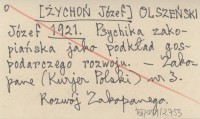 o [ŻYCHOŃ Józef] OLSZEŃSKI
Józef 1921. Psychika zako-
piańska jako podkład gos-
podarczego rozwoju. – Zako-
pane (Kurjer Polski) nr 3.
Rozwój Zakopanego.